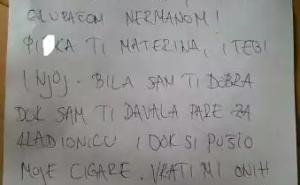 GLUPAČOM NERMANOM!
PI KA TI MATERINA, I TEBI
I NJOJ. BILA SAM TI DOBRA
DOK SAM TI DAVALA PARE ZA
KLADIONICU I DOK SI PUŠIO
MOJE CIGARE. VRATI MI ONIH